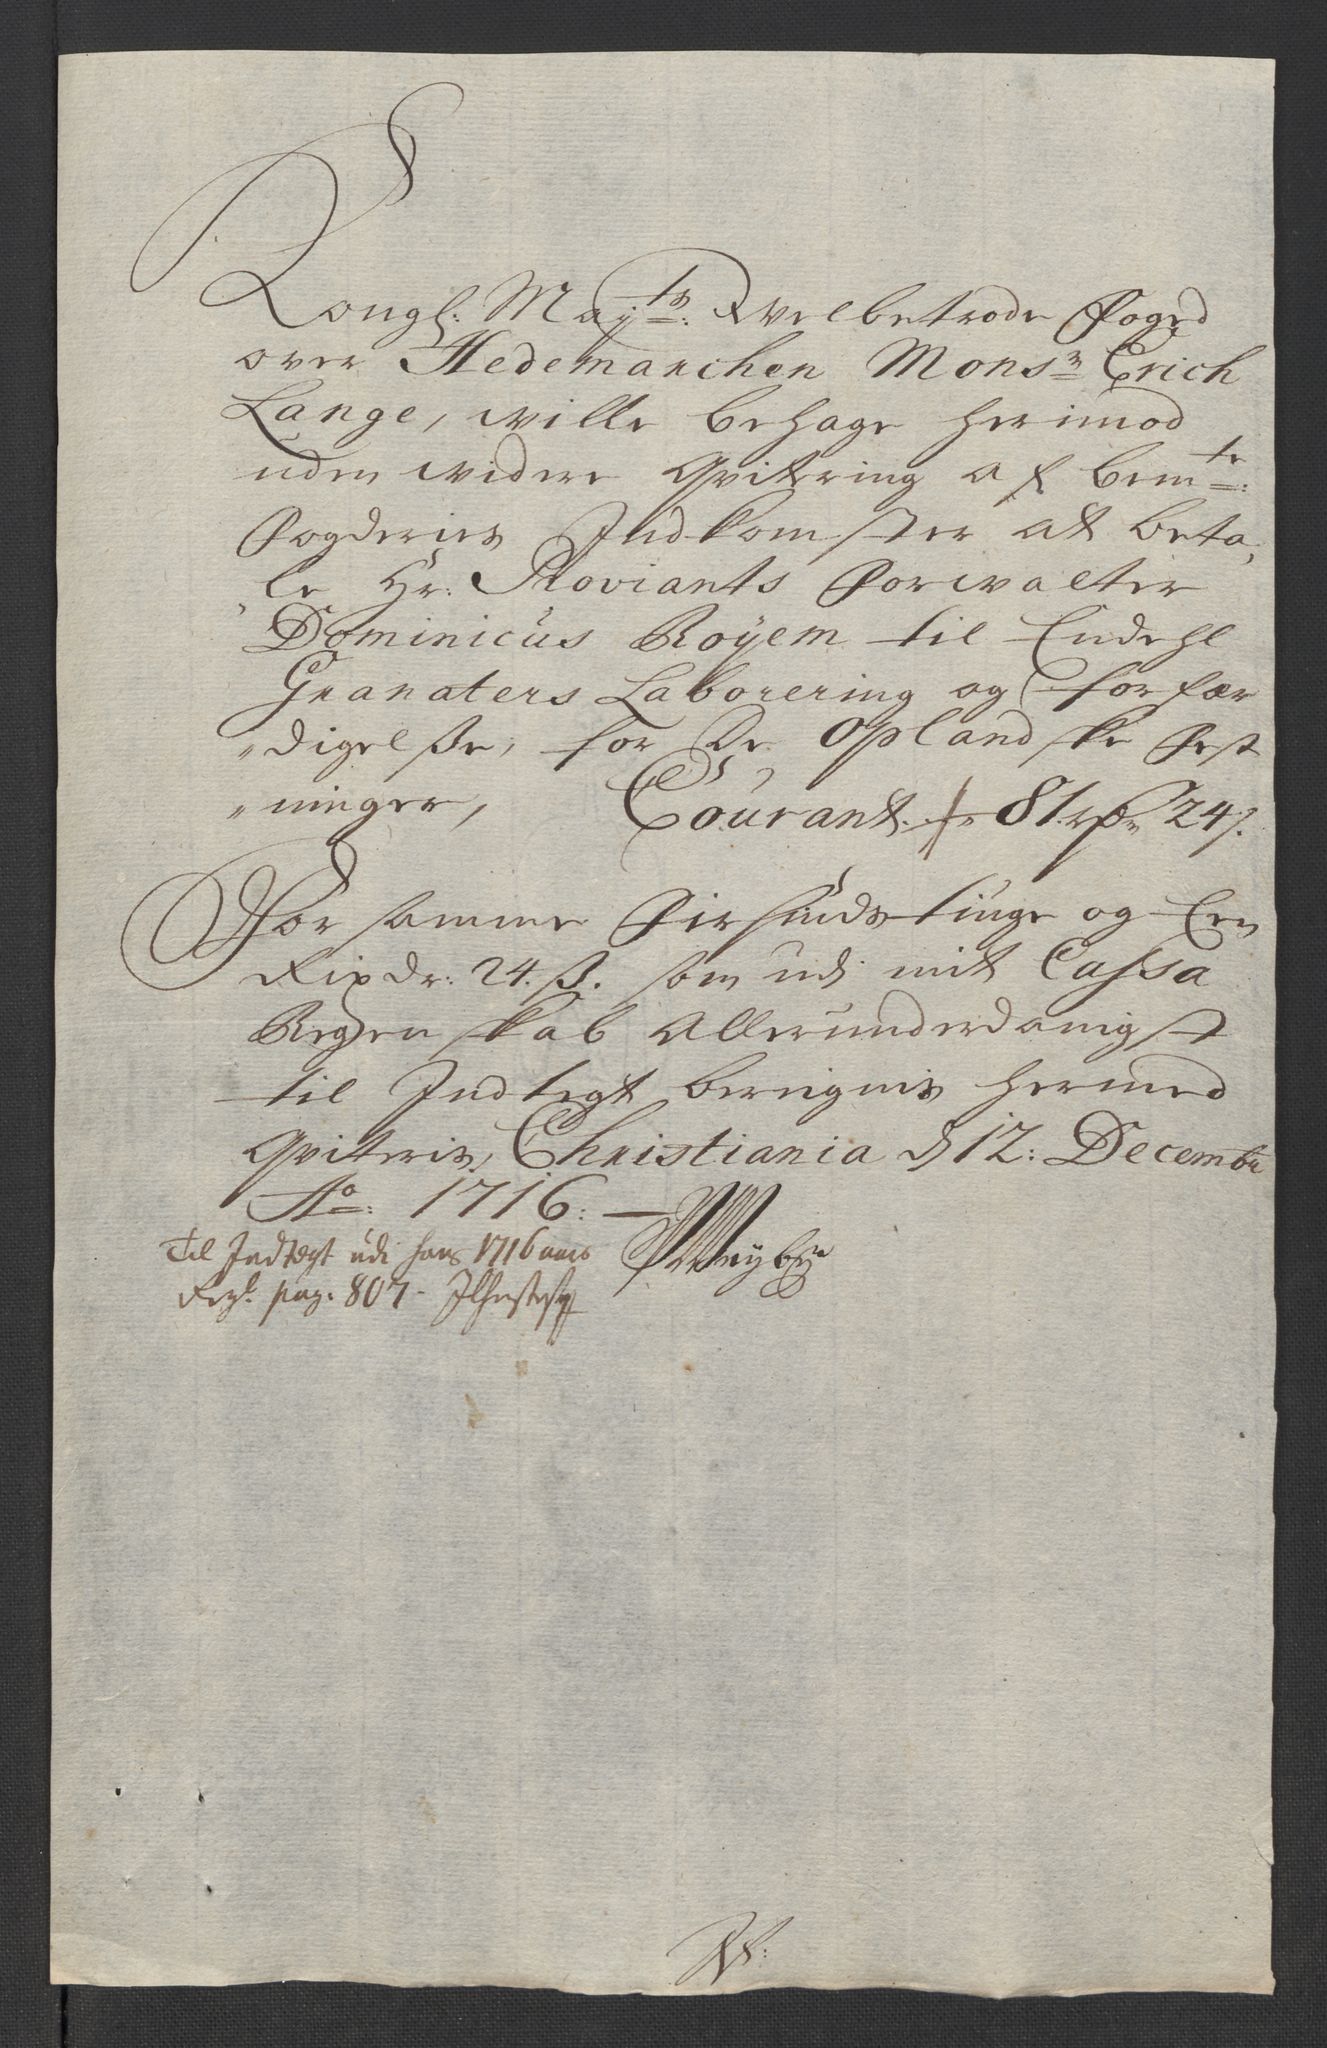 Kongl: May^ts: Welbetrode Foged
over Hedemarchen Mons^r Erich
Lange, wille behage herimod
uden widere Qvitering af bem^te:
Fogderies Indkomster at beta„
„le Hr: Proviants Forwalter
Dominicus Royem til Endehl
Granaters Laborering og forfær
„digelße, for De Oplandske Fest
„ninger, Courant 81 rdr 24 ß.
For samme Firsinds tiuge og Een
Rixdr: 24. ß. som udi mit Cassa
Regenskab Allerunderdanigst
til Indtegt bereignis hermed
Qviteris, Christiania d 12: Decembr
A^o: 1716:
Til Indtægt udi hans 1716 aars
Regl. pag. 807